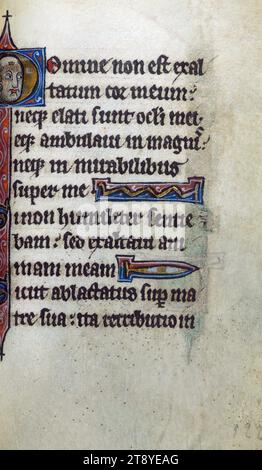 Domine non est exal
tatum cor meum :
neq; elati sunt ocli mei
eq; ambulaui in magnis
neq; in mirabilibus
super me
i non humiliter sentie
bam : sed exaltaui ani
mam meam
icut ablactatus sup ma
tre sua : ita retributio in
alamy
Image ID: 2T8YEAG
www.alamy.com